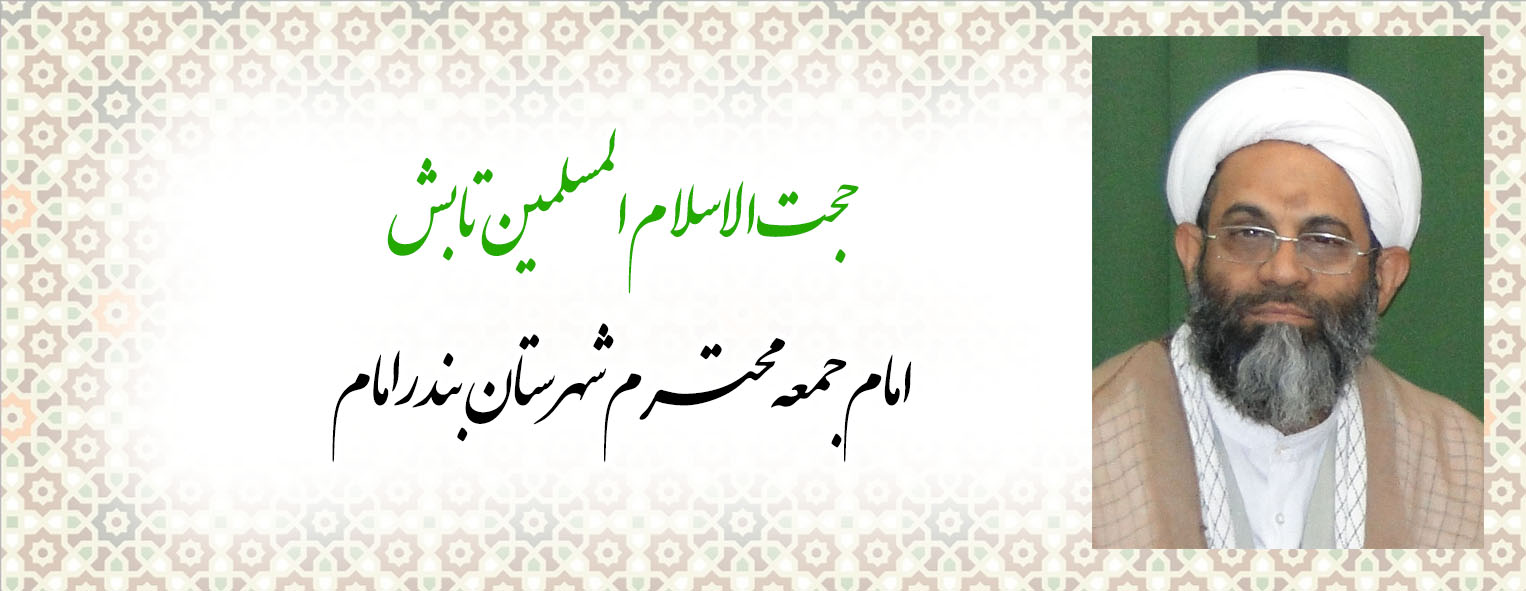 حجت‌الاسلام المسلمین تابش
امام جمعه محترم شهرستان بندرامام